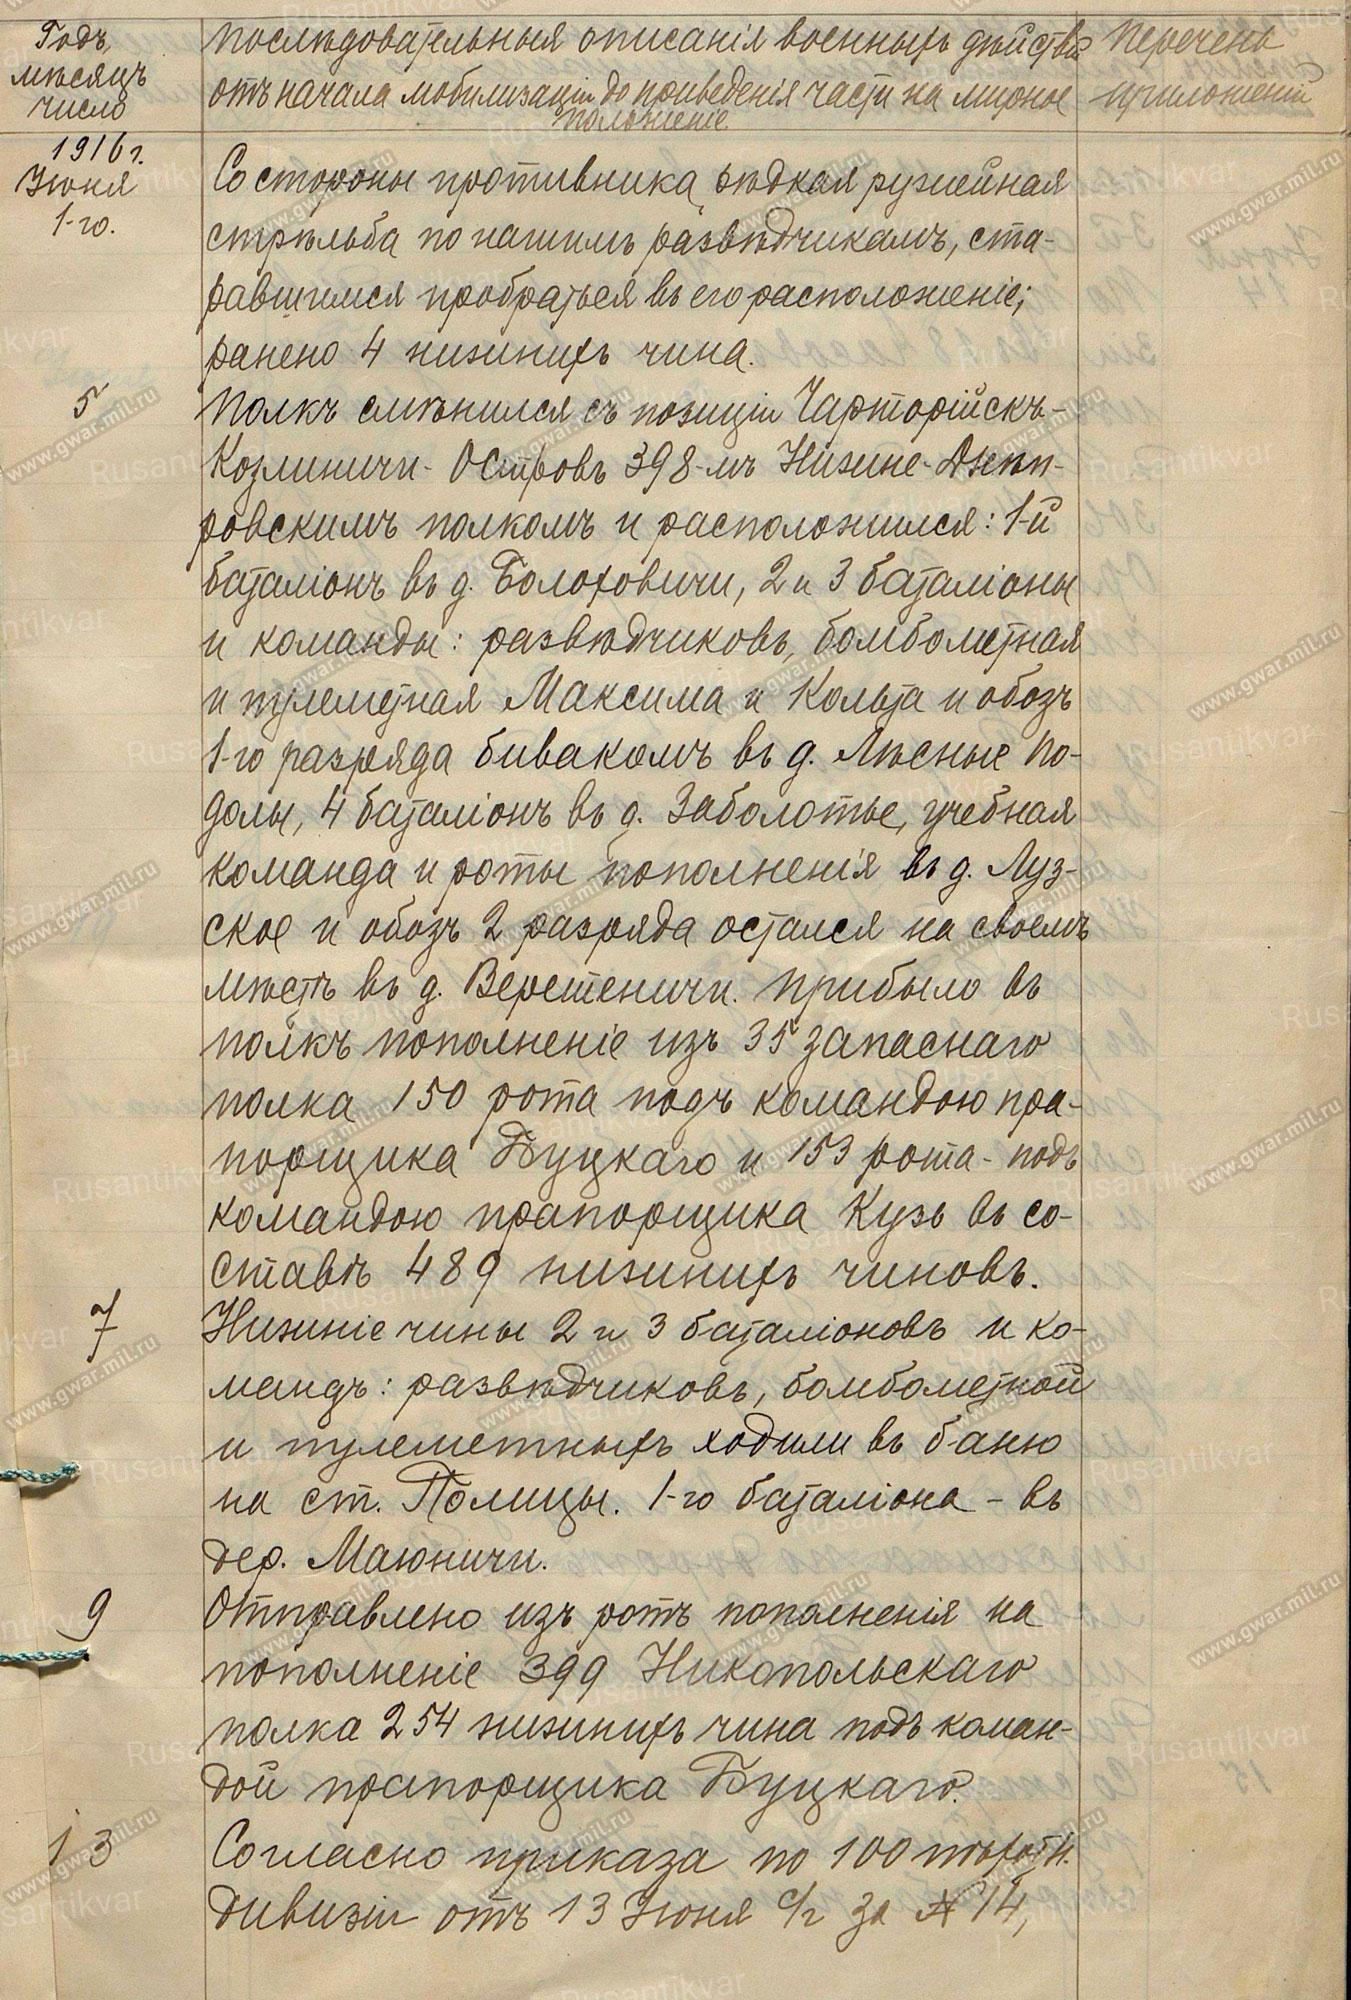 Годъ, мѣсяцъ число
Послѣдовательныя описанія военныхъ дѣйствій отъ начала мобилизаціи до приведенія части на мирное положеніе
Перечень приложеній
1916 г.
Іюня
1-го.
Со стороны противника рѣдкая ружейная
стрѣльба по нашимъ развѣдчикамъ, ста-
равшимся пробраться въ его расположеніе;
ранено 4 нижнихъ чина.
5
Полкъ смѣнился съ позиціи Чарторійскъ-
Козлиничи- Островъ 398-мъ Нижне-Днѣп-
ровскимъ полкомъ и расположился: 1-й
баталіонъ въ д. Болоховичи, 2 и 3 баталіоны
и команды: развѣдчиковъ, бомбометная
и пулеметная Максима и Кольта и обозъ
1-го разряда бивакомъ въ д. Лѣсные По-
долы, 4 баталіонъ въ д. Заболотье, учебная
команда и роты пополненія въ д. Луз-
ское и обозъ 2 разряда остался на своемъ
мѣстѣ въ д. Веретеничи. Прибыло въ
полкъ пополненіе изъ 35 запаснаго
полка 150 рота подъ командою пра-
порщика Буцкаго и 153 рота - подъ
командою прапорщика Кузь въ со-
ставѣ 489 нижнихъ чиновъ.
7
Нижніе чины 2 и 3 баталіоновъ и ко-
мандъ: развѣдчиковъ, бомбометной
и пулеметныхъ ходили въ баню
на ст. Полицы. 1-го баталіона - въ
дер. Маюничи.
9
Отправлено изъ ротъ пополненія на
пополненіе 399 Никопольскаго
полка 254 нижнихъ чина подъ коман-
дой прапорщика Буцкаго.
13
Согласно приказа по 100 пѣхотн.
дивизіи отъ 13 Іюня с/г за № 14,
www.gwar.mil.ru
Rusantikvar